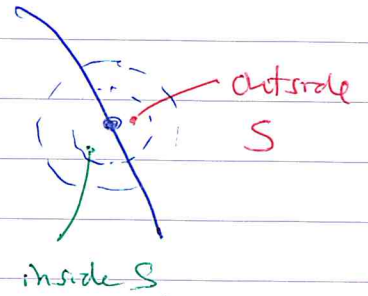 outside
S
inside S